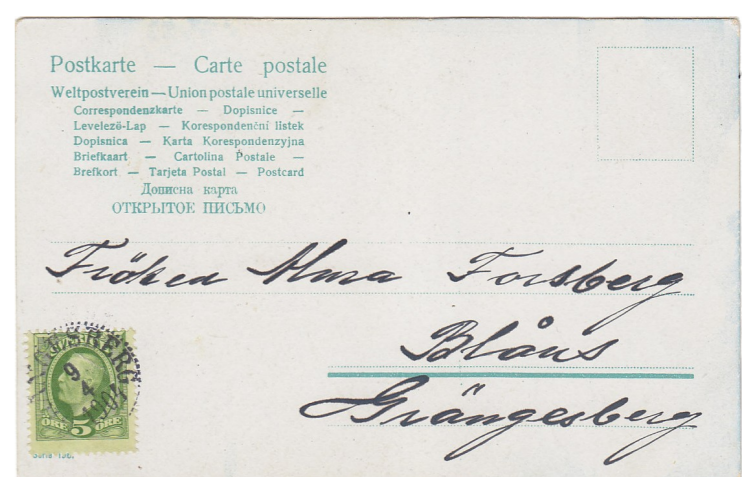 Postkarte — Carte postale
Weltpostverein — Union postale universelle
Correspondenzkarte — Dopisnice —
Levelező-Lap — Korespondenční listek
Dopisnica — Karta Korespondenzyjna
Briefkaart — Cartolina Postale —
Brefkort — Tarjeta Postal — Postcard
Дописна карта
ОТКРЫТОЕ ПИСЬМО
Fröken Alma Forsberg
Blåns
Grängesberg
9
4
1907
ÖRE 5 ÖRE